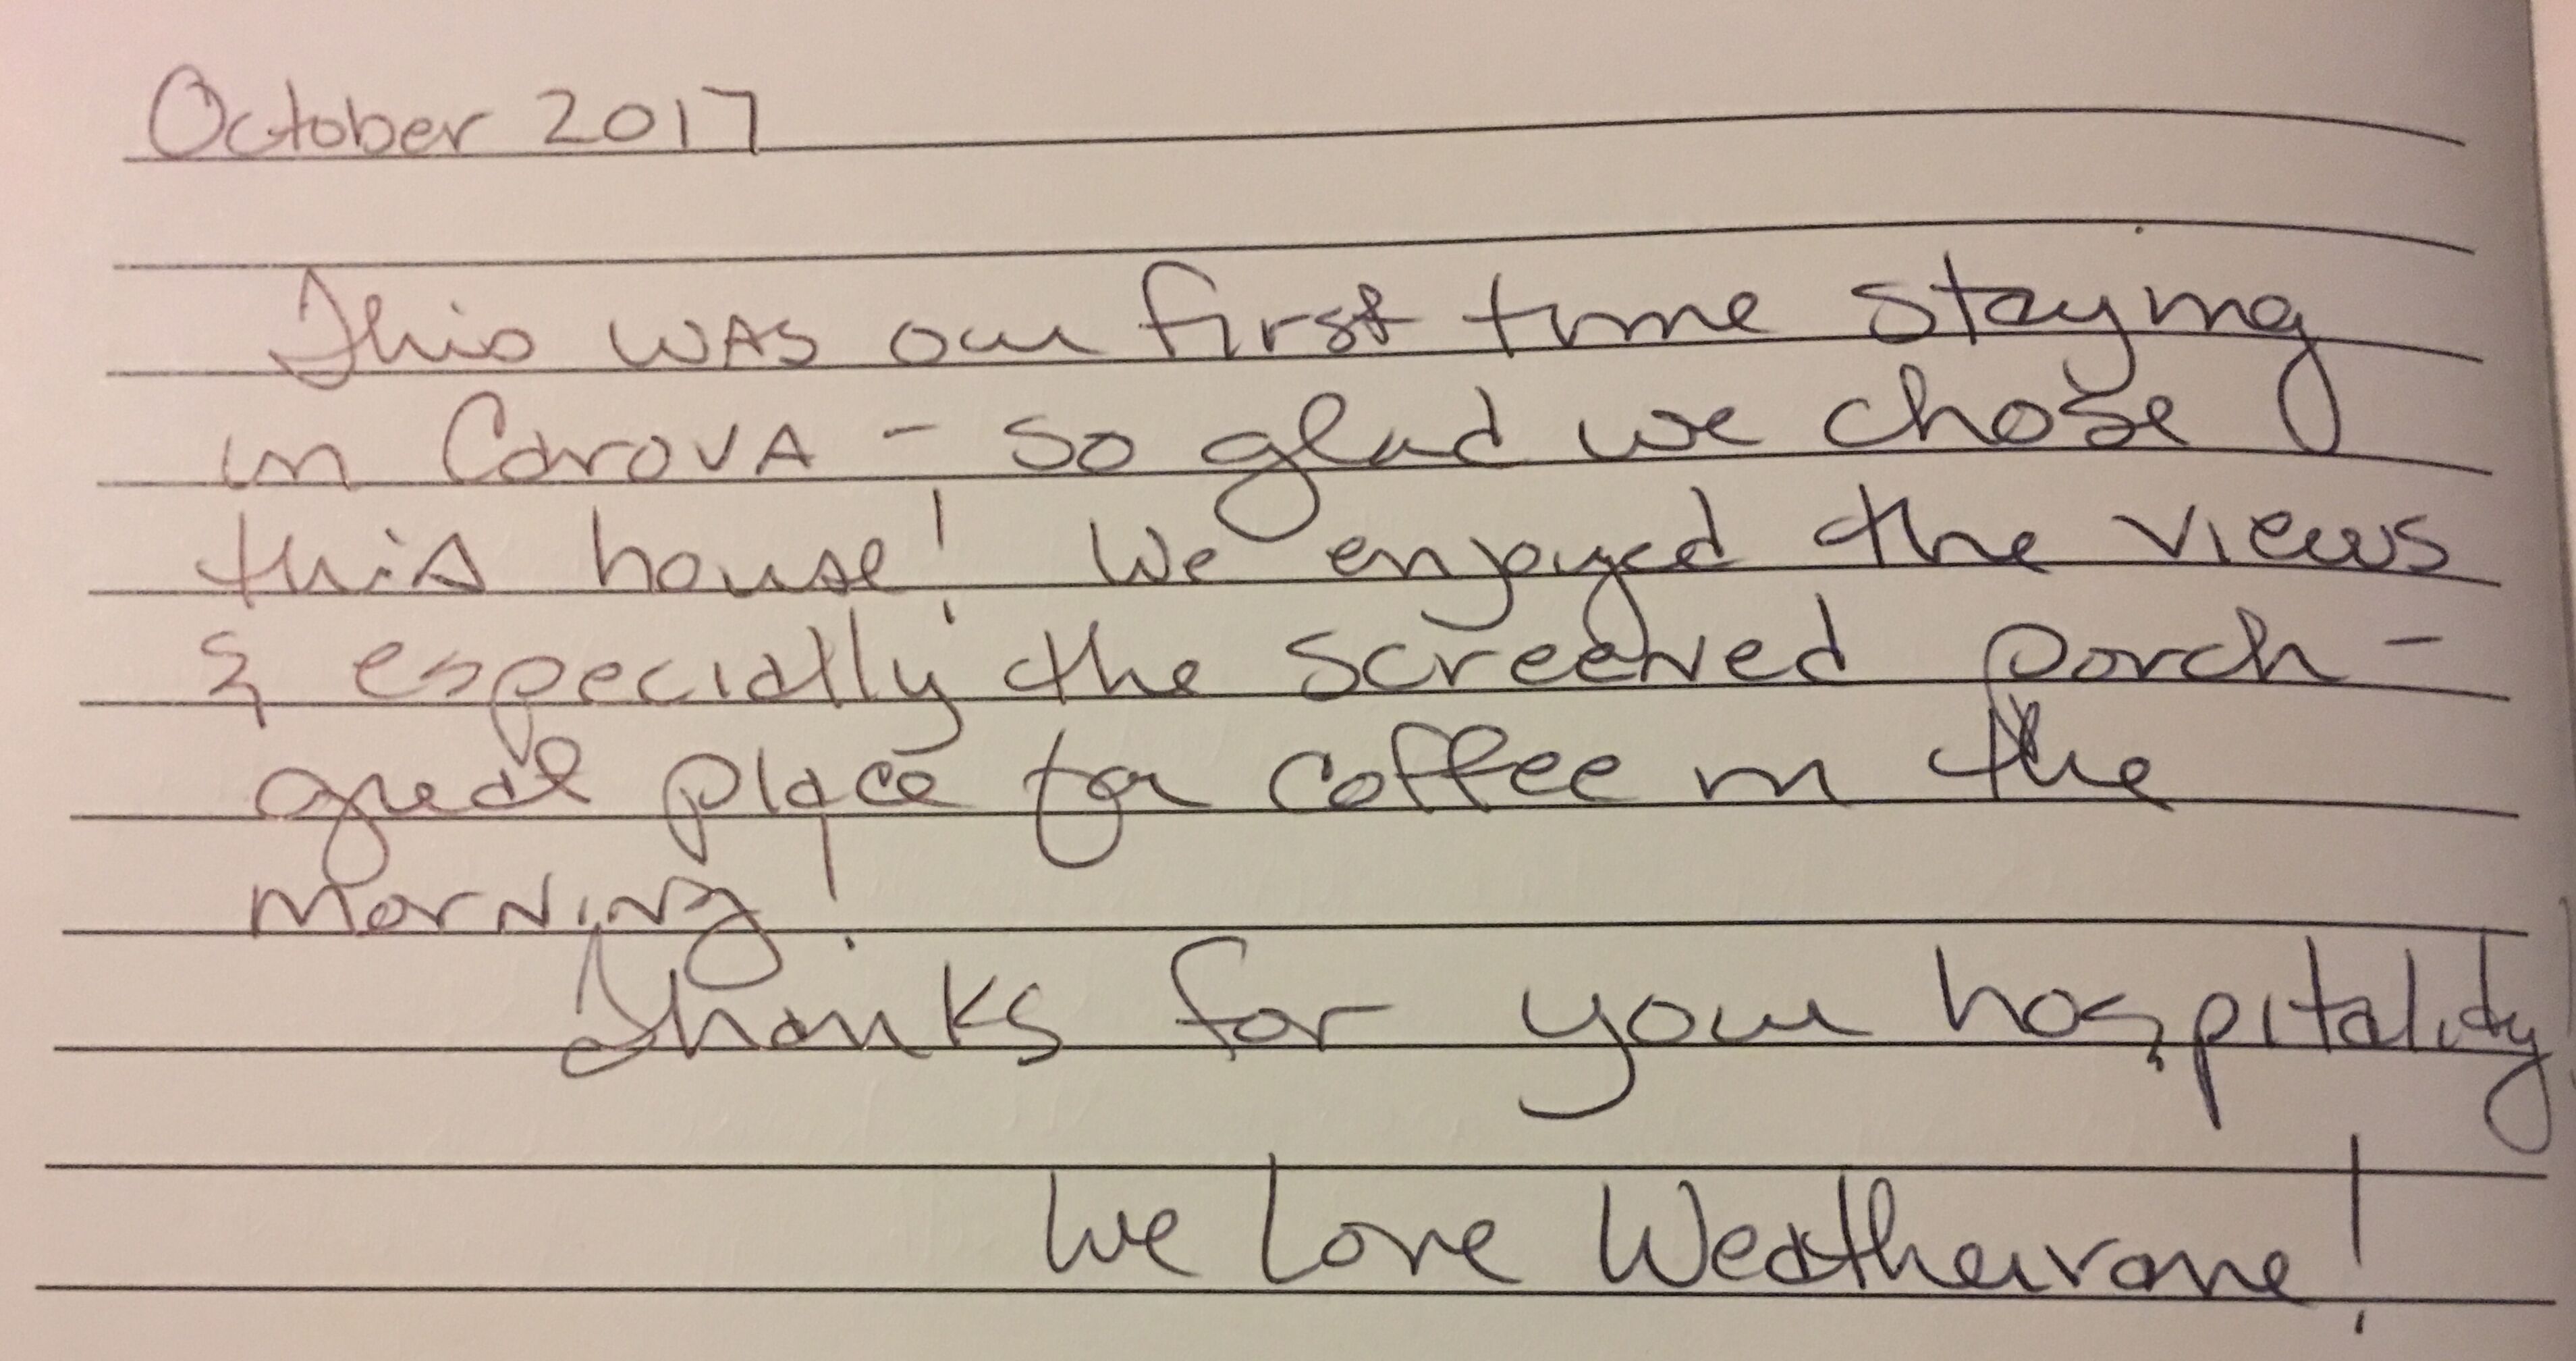 October 2017
This was our first time staying
in Carova - so glad we chose
this house! We enjoyed the views
& especially the screened porch -
great place for coffee in the
morning!
Thanks for your hospitality!
We Love Weathervane!